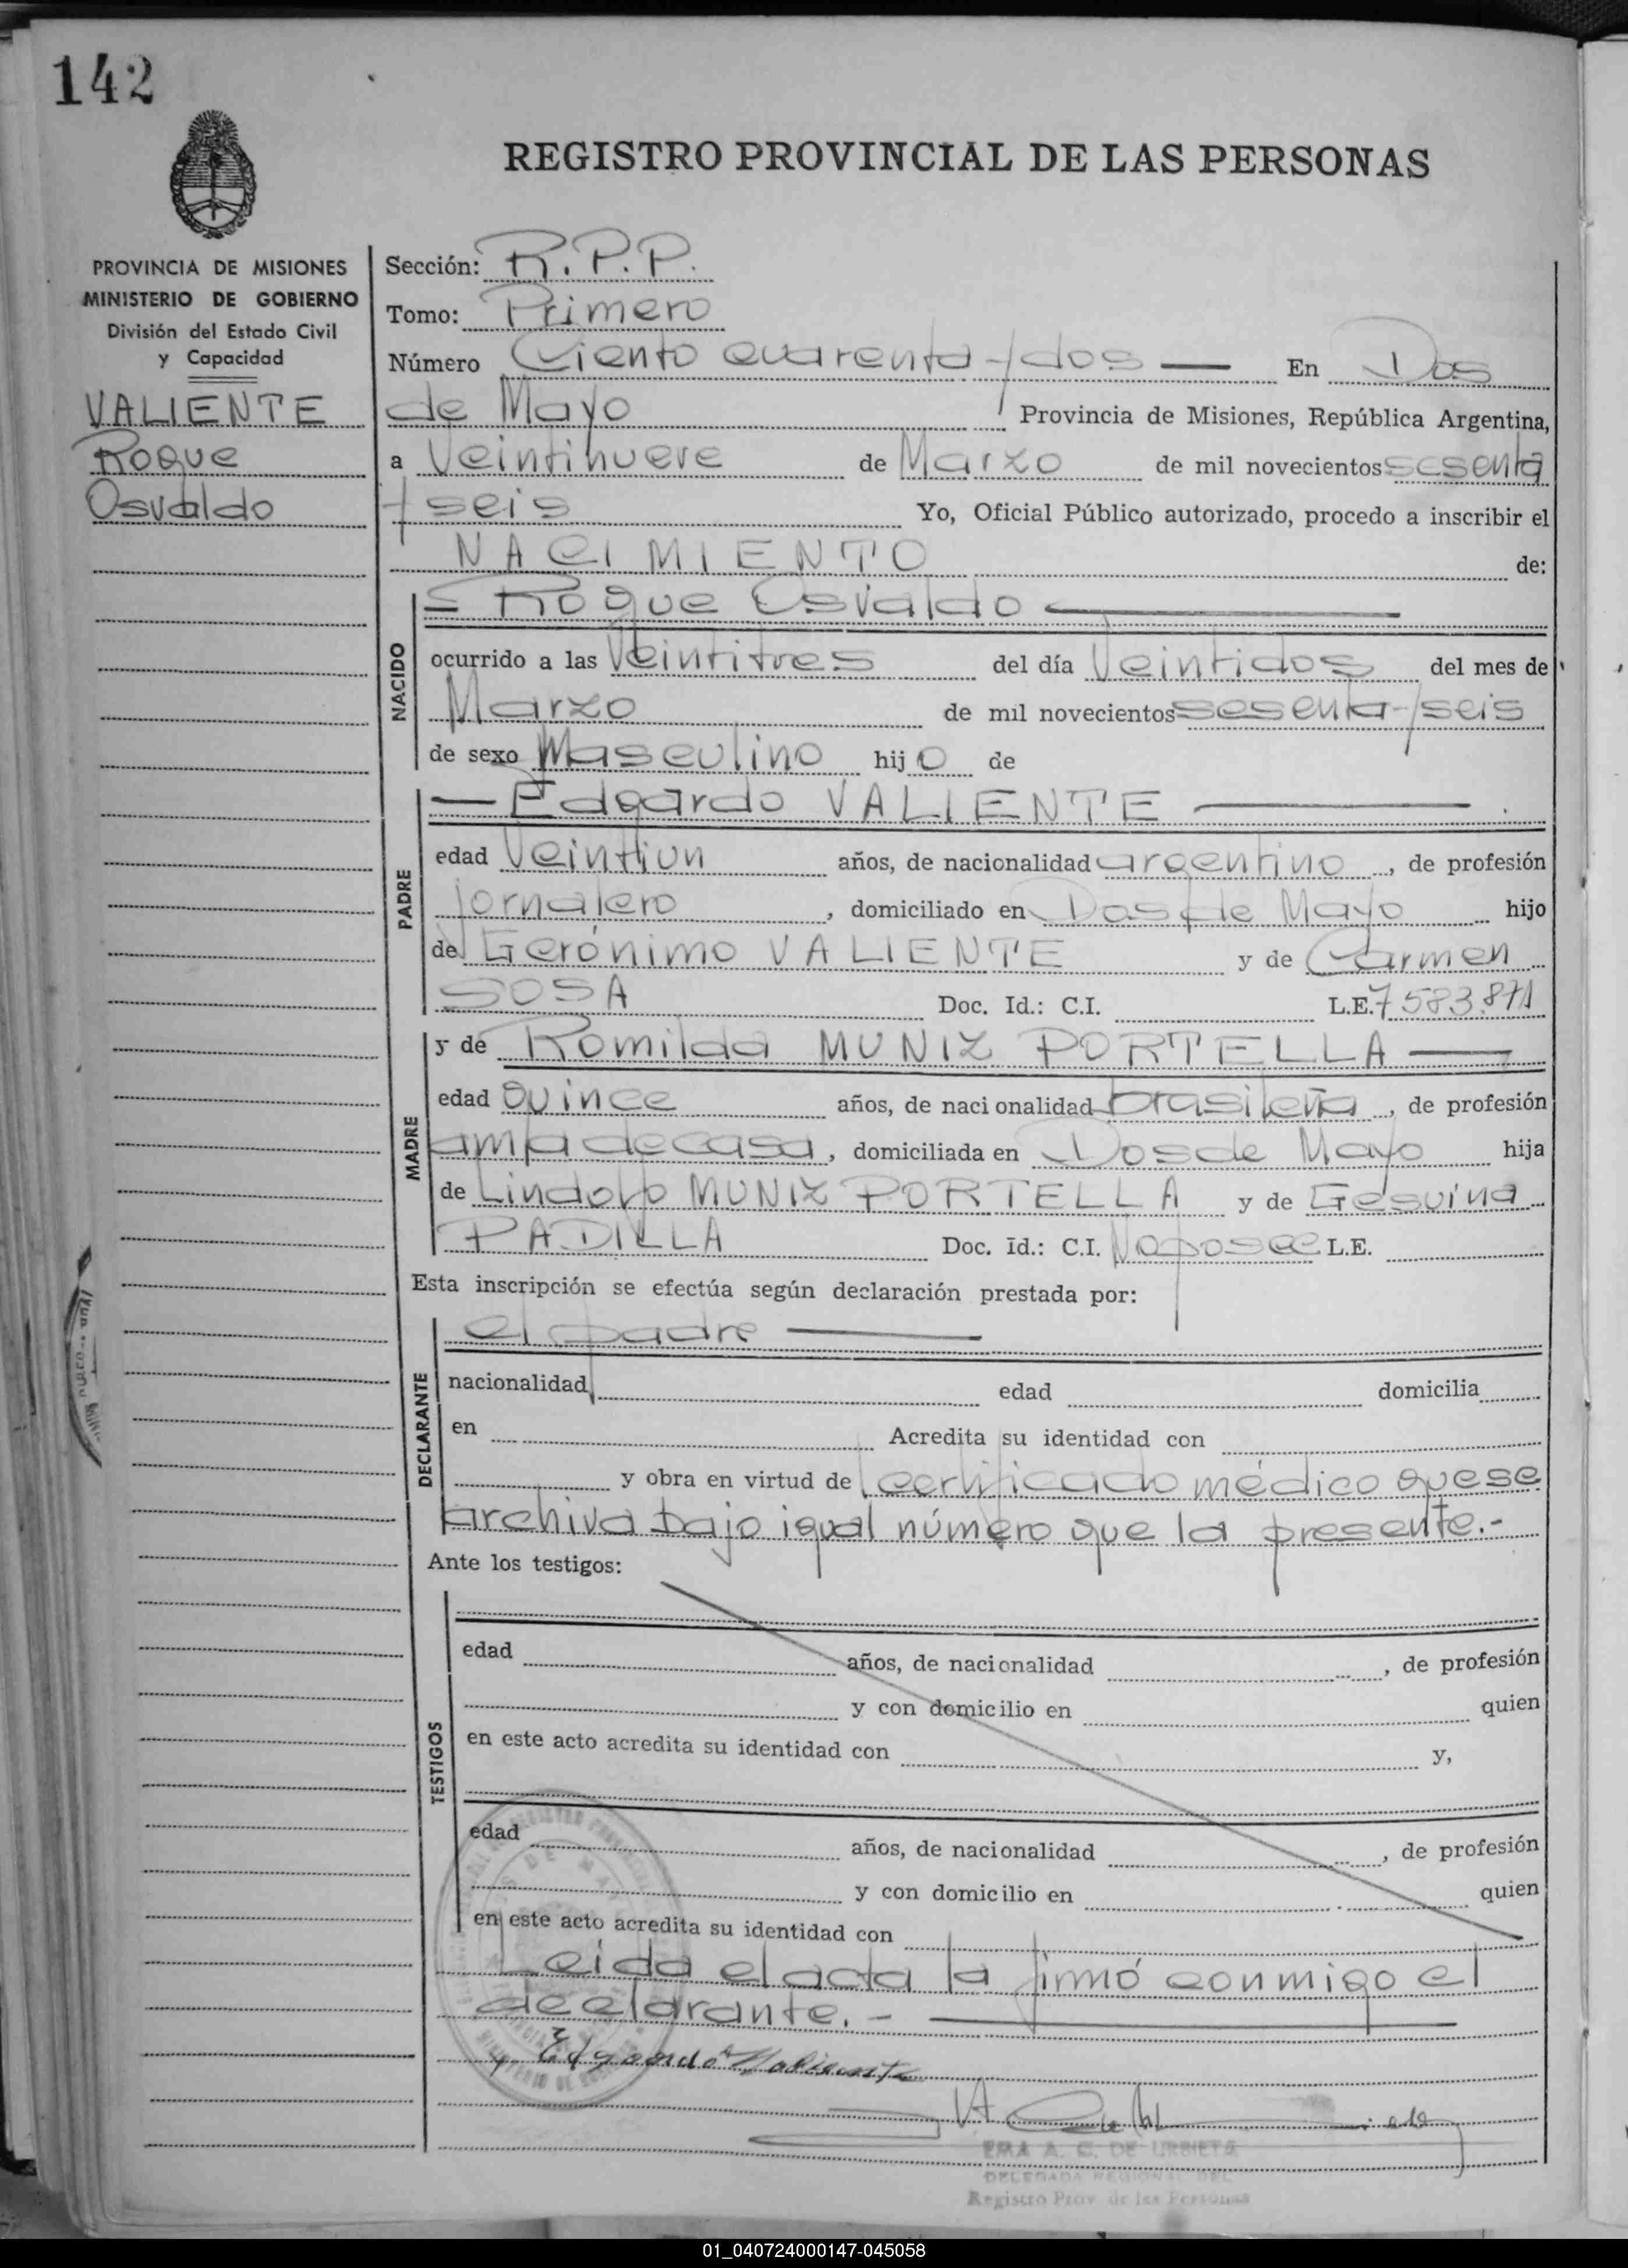 142
REGISTRO PROVINCIAL DE LAS PERSONAS
PROVINCIA DE MISIONES
MINISTERIO DE GOBIERNO
División del Estado Civil
y Capacidad
VALIENTE
Roque
Osvaldo
Sección: R.P.P.
Tomo: Primero
Número Ciento cuarenta y dos En Dos
de Mayo Provincia de Misiones, República Argentina,
a Veintinueve de Marzo de mil novecientos sesenta
y seis Yo, Oficial Público autorizado, procedo a inscribir el
NACIMIENTO de:
NACIDO
Roque Osvaldo
ocurrido a las Veintitres del día Veintidos del mes de
Marzo de mil novecientos sesenta y seis
de sexo Masculino hijo de
PADRE
Edgardo VALIENTE
edad Veintiun años, de nacionalidad argentino, de profesión
jornalero, domiciliado en Dos de Mayo hijo
de Gerónimo VALIENTE y de Carmen
SOSA Doc. Id.: C.I. L.E. 7583.871
MADRE
y de Romilda MUNIZ PORTELLA
edad Quince años, de nacionalidad brasileña, de profesión
ama de casa, domiciliada en Dos de Mayo hija
de Lindolfo MUNIZ PORTELLA y de Gesuina
PADILLA Doc. Id.: C.I. No posee L.E.
Esta inscripción se efectúa según declaración prestada por:
DECLARANTE
el padre
nacionalidad edad domicilia
en Acredita su identidad con
y obra en virtud de certificado médico que se
archiva bajo igual número que la presente.-
Ante los testigos:
TESTIGOS
edad años, de nacionalidad , de profesión
y con domicilio en quien
en este acto acredita su identidad con y,
edad años, de nacionalidad , de profesión
y con domicilio en quien
en este acto acredita su identidad con
Leida el acta la firmó conmigo el
declarante.-
Edgardo Valiente
EMA A. C. DE URBIETA
DELEGADA REGIONAL DEL
Registro Prov. de las Personas
01_040724000147-045058